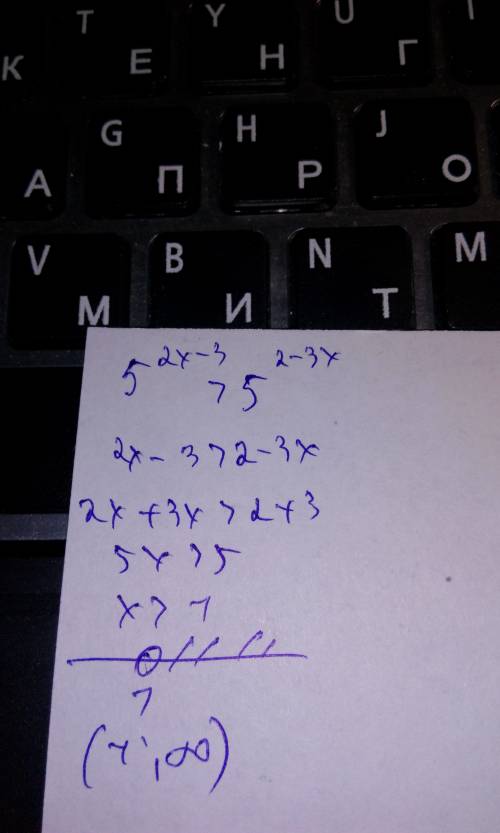 T Y U
К Е Н Г
G H J
А П Р О
V B N M
М И Т
5^{2x-3} > 5^{2-3x}
2x - 3 > 2 - 3x
2x + 3x > 2 + 3
5x > 5
x > 1
1
(1; ∞)